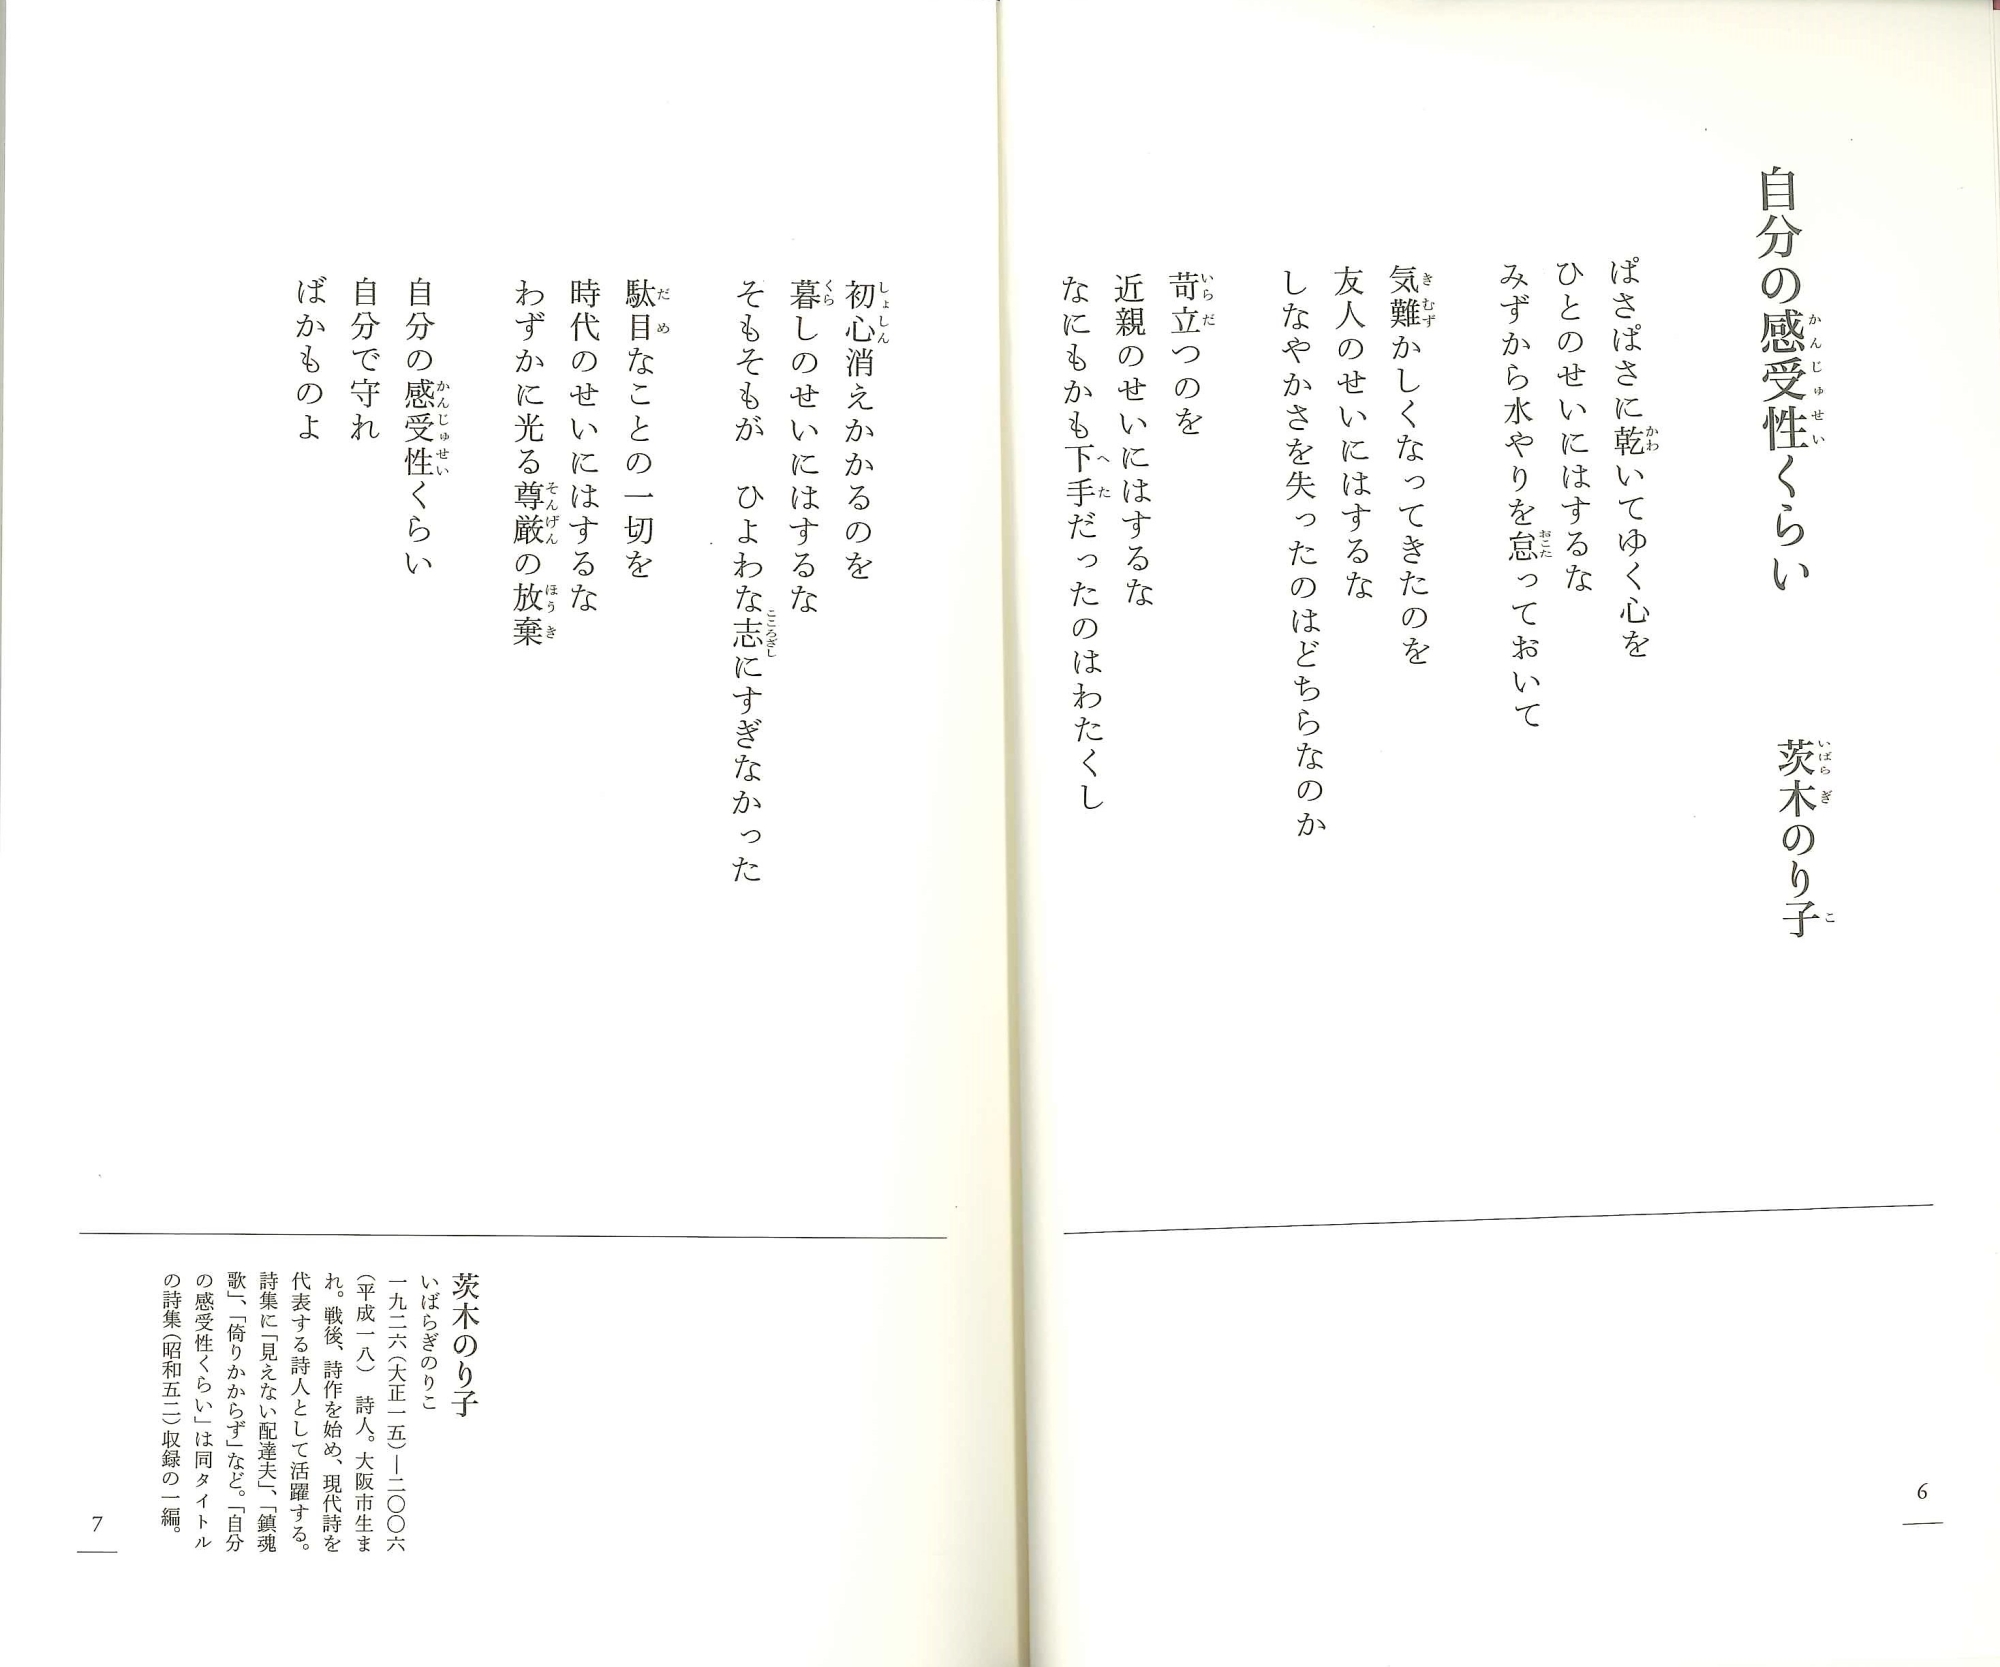 自分の感受性くらい　茨木のり子
ぱさぱさに乾いてゆく心を
ひとのせいにはするな
みずから水やりを怠っておいて
気難かしくなってきたのを
友人のせいにはするな
しなやかさを失ったのはどちらなのか
苛立つのを
近親のせいにはするな
なにもかも下手だったのはわたくし
6
初心消えかかるのを
暮しのせいにはするな
そもそもが　ひよわな志にすぎなかった
駄目なことの一切を
時代のせいにはするな
わずかに光る尊厳の放棄
自分の感受性くらい
自分で守れ
ばかものよ
茨木のり子
いばらぎのりこ
一九二六(大正一五)―二〇〇六
(平成一八)　詩人。大阪市生ま
れ。戦後、詩作を始め、現代詩を
代表する詩人として活躍する。
詩集に「見えない配達夫」、「鎮魂
歌」、「倚りかからず」など。「自分
の感受性くらい」は同タイトル
の詩集(昭和五二)収録の一編。
7